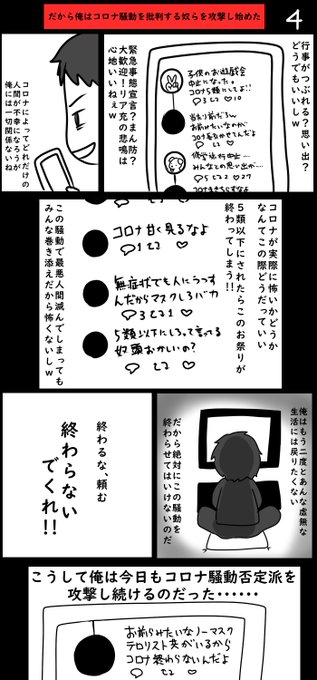 だから俺はコロナ騒動を批判する奴らを攻撃し始めた
4
行事がつぶれる？思い出？
どうでもいいw
子供のお遊戯会
中止になった。
お前みたいなのが
修学旅行中止…
みんなとの思い出が…
コロナまきちらすなよ
緊急事態宣言？まん防？
大歓迎！リア充の悲鳴は
心地いいねぇw
コロナによってどれだけの
人間が不幸になろうが
俺には一切関係ないね
コロナが実際に怖いかどうか
なんてこの際どうだっていい
５類以下にされたらこのお祭りが
終わってしまう！！
コロナ甘く見るなよ
無症状でも人にうつす
んだからマスクしろバカ
5類以下にしろって言ってる
奴頭おかしいの？
この騒動で最悪人間滅んでしまっても
みんな巻き添えだから怖くないしw
俺はもう二度とあんな虚無な
生活には戻りたくない
だから絶対にこの騒動を
終わらせてはいけないのだ
終わるな、頼む
終わらない
でくれ!!
こうして俺は今日もコロナ騒動否定派を
攻撃し続けるのだった……
お前らみたいなノーマスク
テロリスト共がいるから
コロナ終わらないんだよ